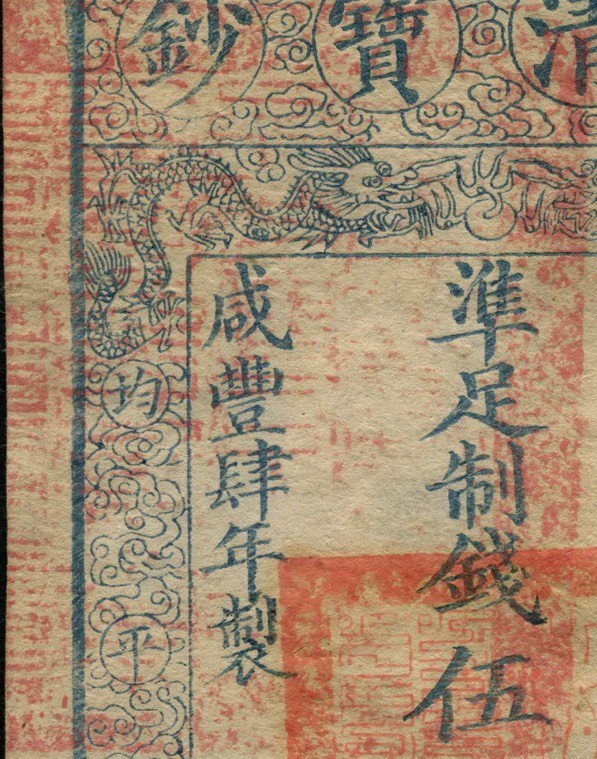 清寶鈔
準足制錢伍
咸豐肆年製
均平